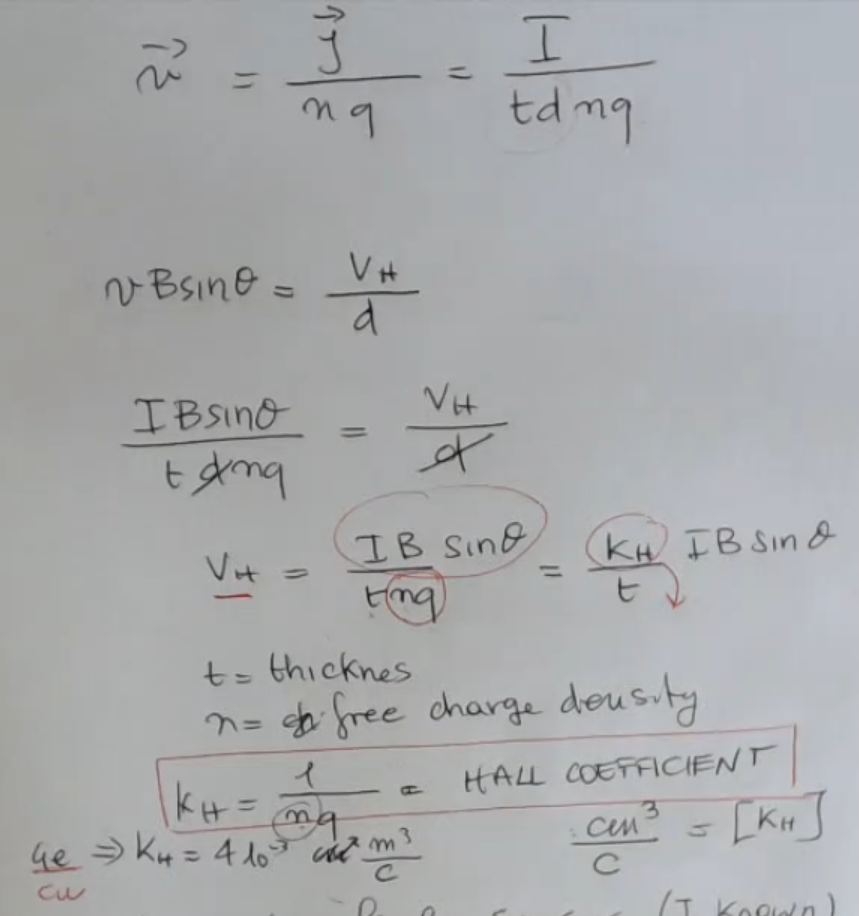 v⃗ = j⃗ / nq = I / tdnq
vBsinθ = VH / d
IBsinθ / tdnq = VH / d
VH = IB sinθ / tnq = KH / t IBsinθ
t = thicknes
n = free charge density
KH = 1 / nq = HALL COEFFICIENT
Ge ⇒ KH = 4 10⁻³ m³ / C cm³ / C = [KH]
Cu
(I known)